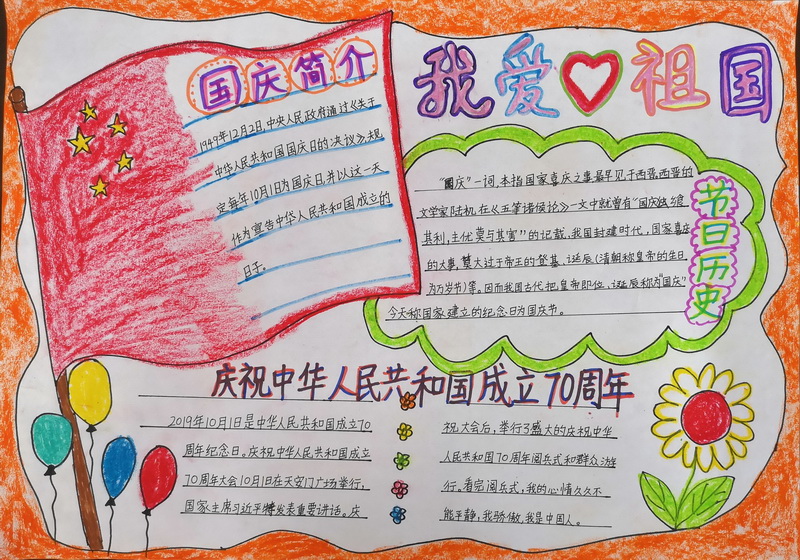 国庆简介
1949年12月2日,中央人民政府通过《关于
中华人民共和国国庆日的决议》,规
定每年10月1日为国庆日,并以这一天
作为宣告中华人民共和国成立的
日子。
我爱祖国
"国庆"一词,本指国家喜庆之事最早见于西晋,西晋的
文学家陆机在《五等诸侯论》一文中就曾有"国庆独飨
其利,主优莫与其害"的记载、我国封建时代,国家喜庆
的大事,莫大过于帝王的登基、诞辰(清朝称皇帝的生日
为万岁节)等。因而我国古代把皇帝即位、诞辰称为"国庆"
今天称国家建立的纪念日为国庆节。
节日历史
庆祝中华人民共和国成立70周年
2019年10月1日是中华人民共和国成立70
周年纪念日。庆祝中华人民共和国成立
70周年大会10月1日在天安门广场举行,
国家主席习近平发表重要讲话。庆
祝大会后,举行了盛大的庆祝中华
人民共和国70周年阅兵式和群众游
行。看完阅兵式,我的心情久久不
能平静,我骄傲,我是中国人。